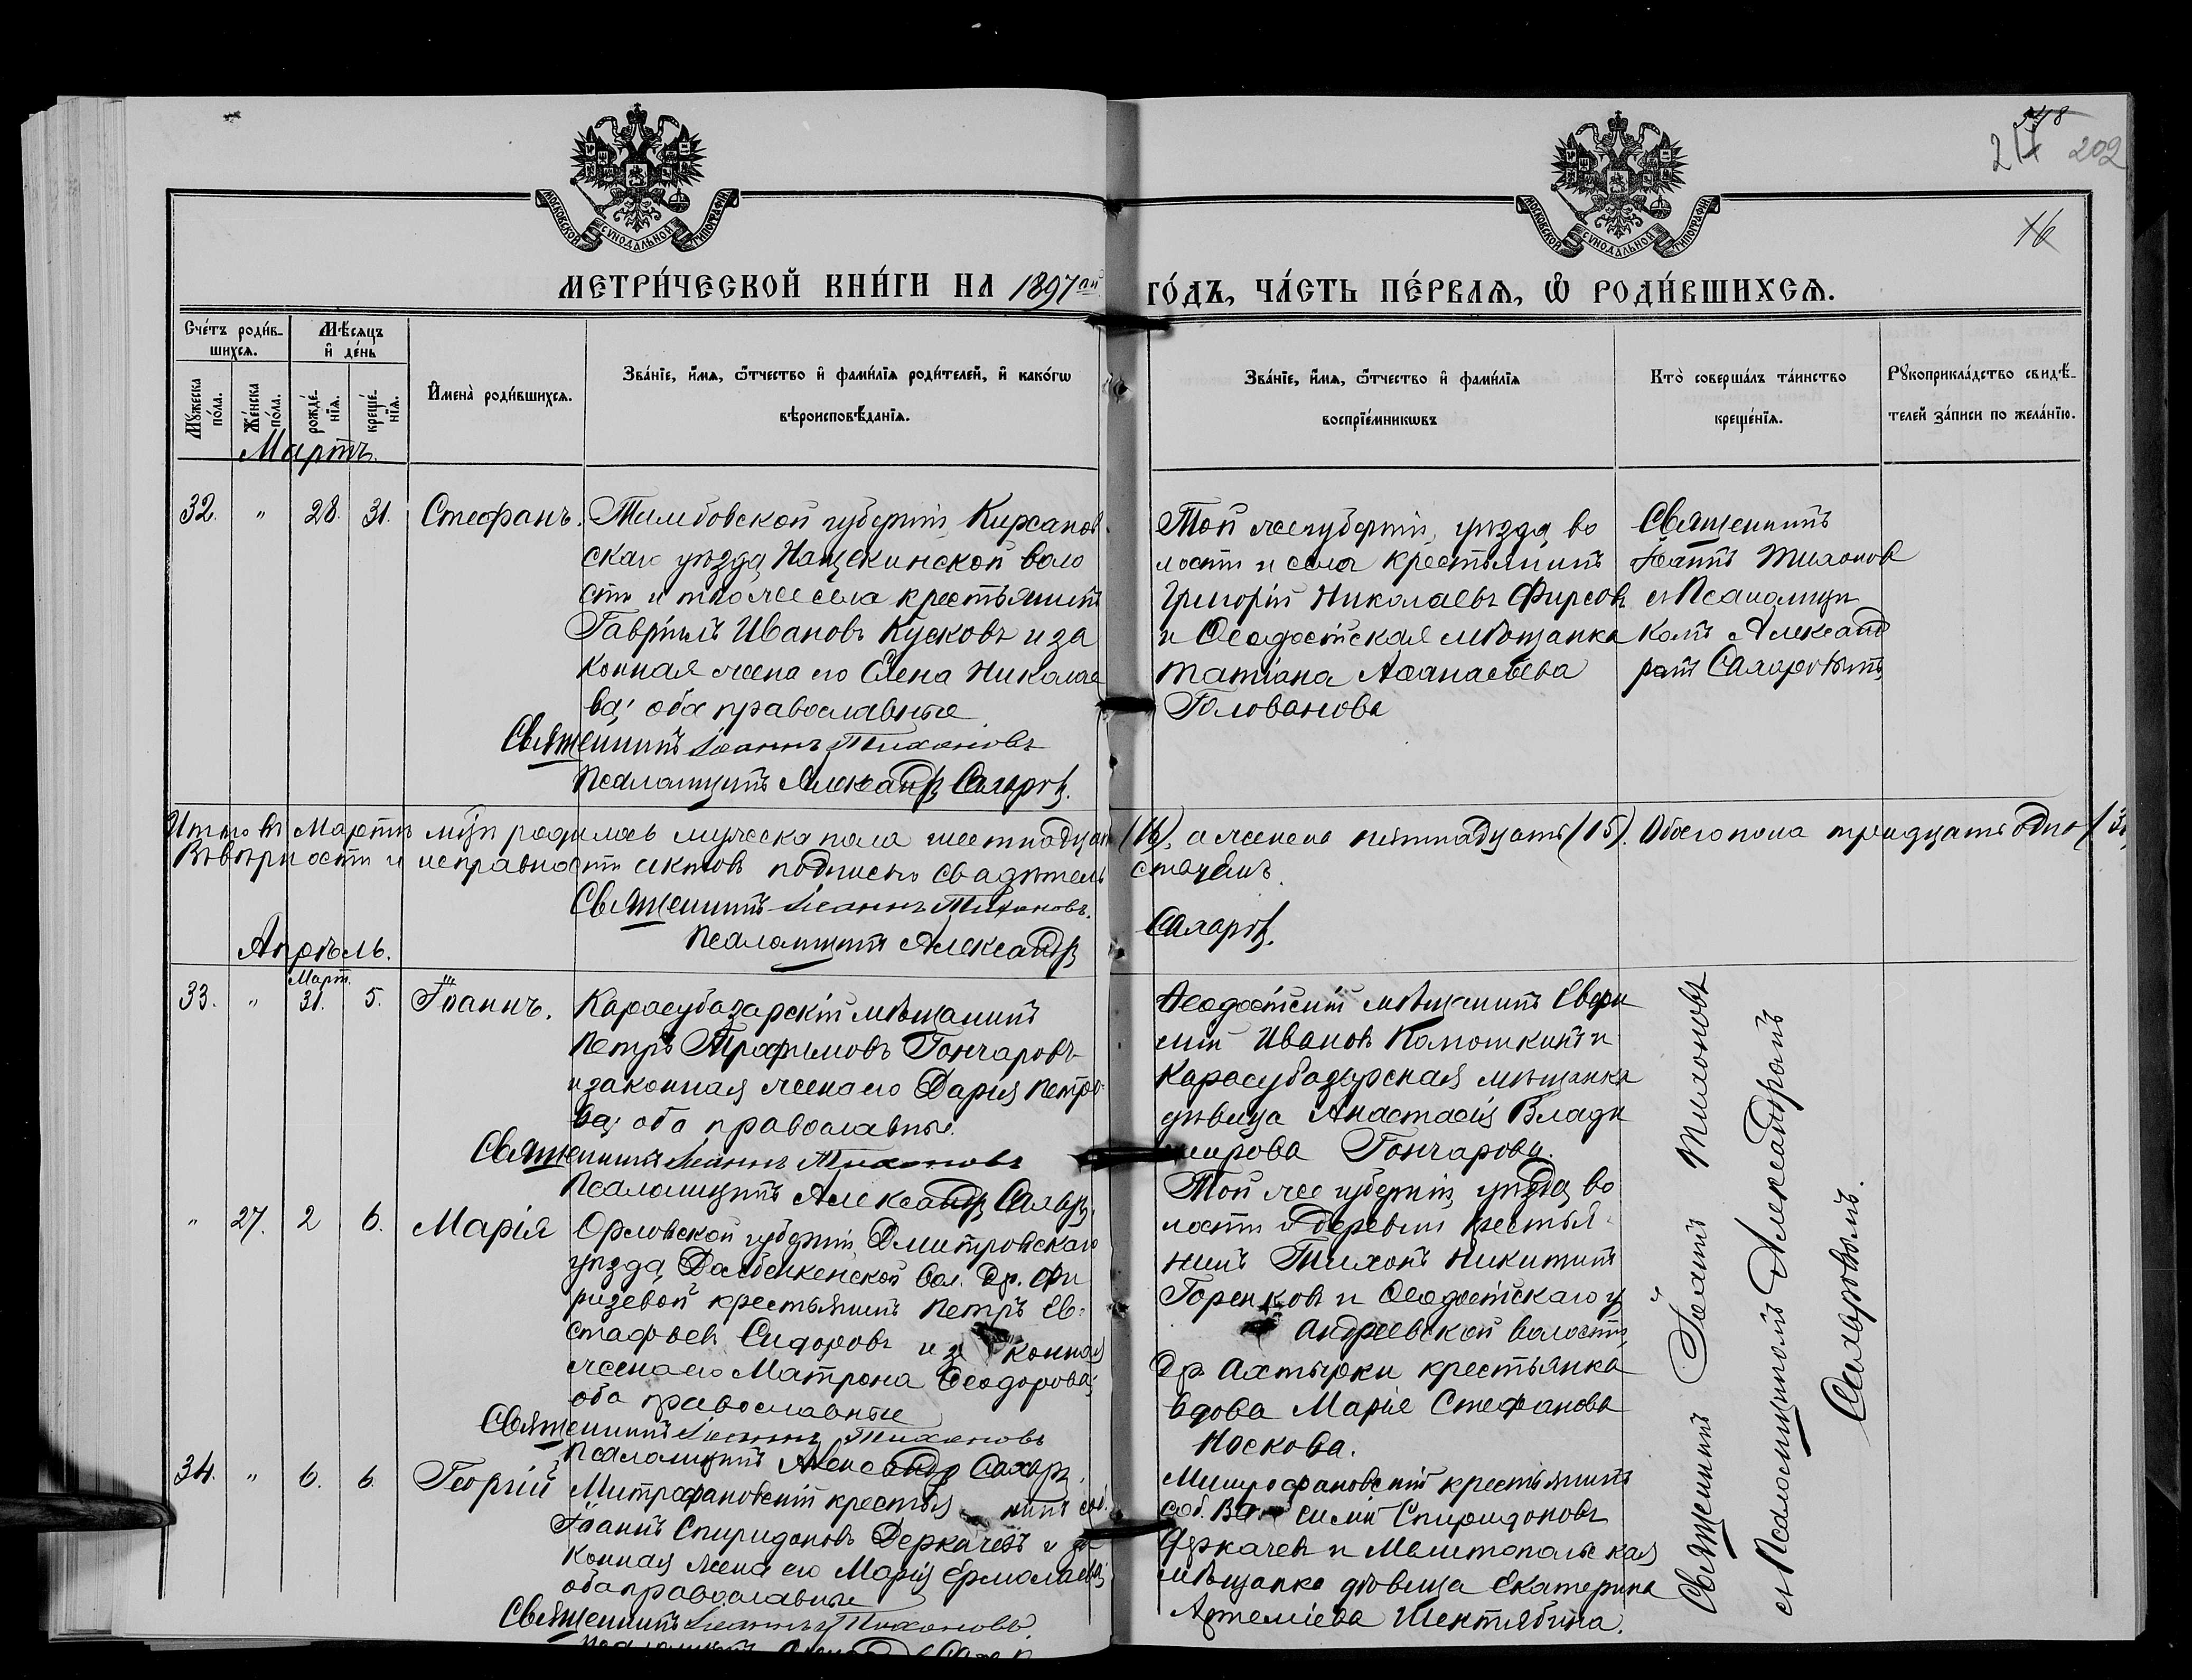 248
202
16
МОСКОВСКОЙ СѴНОДАЛЬНОЙ ТИПОГРАФІИ
МОСКОВСКОЙ СѴНОДАЛЬНОЙ ТИПОГРАФІИ
МЕТРИ́ЧЕСКОЙ КНИ́ГИ НА 1897ый ГО́ДЪ, ЧА́СТЬ ПЕ́РВАѦ, Ѡ РОДИ́ВШИХСѦ.
Сче́тъ роди́в-
шихсѧ.
Мѣ́сѧцъ
и де́нь
Мꙋ́жеска
по́ла.
Же́нска
по́ла.
рожде́-
нїѧ.
креще́-
нїѧ.
Имена̀ роди́вшихсѧ.
Зва́нїе, и́мѧ, ѻ́тчество и фами́лїѧ роди́телей, и како́гѡ
вѣроисповѣ́данїѧ.
Зва́нїе, и́мѧ, ѻ́тчество и фами́лїѧ
воспрїе́мникѡвъ
Кто̀ соверша́лъ та́инство
креще́нїѧ.
Рꙋкоприкла́дство свидѣ́-
телей за́писи по жела́нїю.
Мартъ.
32. " 28. 31. Стефанъ.
Тамбовской губерніи, Кирсанов
скаго уѣзда, Нащекинской воло
сти и того же села крестьянинъ
Гавріилъ Ивановъ Кусковъ и за
конная жена его Елена Николае
ва; оба православные
Священникъ Іоаннъ Тихоновъ
Псаломщикъ Александръ Сахаровъ.
Той же губерніи, уѣзда, во
лости и села крестьянинъ
Григорій Николаевъ Фирсовъ
и Ѳеодосійская мѣщанка
Татіана Аѳанасьева
Голованова
Священникъ
Іоаннъ Тихоновъ
съ Псаломщи
комъ Александ
ромъ Сахаровымъ
Итого въ Мартѣ м-цѣ родилось мужеска пола шестнадцать (16), а женска пятнадцать (15). Обоего пола тридцать одно (31)
Въ вѣрности и исправности актовъ подписью свидѣтельствуемъ.
Священникъ Іоаннъ Тихоновъ.
Псаломщикъ Александръ Сахаровъ.
Апрѣль.
33. " Март. 31. 5. Іоаннъ.
Карасубазарскій мѣщанинъ
Петръ Трофимовъ Гончаровъ
и законная жена его Дарія Петро-
ва; оба православные.
Священникъ Іоаннъ Тихоновъ
Псаломщикъ Александръ Сахаровъ.
Ѳеодосійскій мѣщанинъ
Ивановъ и
Карасубазарская мѣщанка
дѣвица Анастасія Влади
мирова Гончарова.
" 27. 2 6. Марія
Орловской губерніи, Дмитровскаго
уѣзда, вол. др.
крестьянинъ Петръ Ев-
стафьевъ Сидоровъ и законная
жена его Матрона Ѳеодорова;
оба православные
Священникъ Іоаннъ Тихоновъ
Псаломщикъ Александръ Сахаровъ.
Той же губерніи, уѣзда, во
лости и деревни крестья-
нинъ Тихонъ Никитинъ
Горенковъ и Ѳеодосійскаго у.
Андреевской волости,
др. Ахтырки крестьянка
вдова Марія Стефанова
Носкова.
34. " 6. 6. Георгій
Митрофановскій крестьянинъ соб.
Іоаннъ Спиридоновъ Деркачевъ и за
конная жена его Марія Ермолаева;
оба православные
Священникъ Іоаннъ Тихоновъ.
Митрофановскій крестьянинъ
соб. Василій Спиридоновъ
Деркачевъ и Мелитопольская
мѣщанка дѣвица Екатерина
Артеміева
Священникъ Іоаннъ Тихоновъ
съ Псаломщикомъ Александромъ
Сахаровымъ.